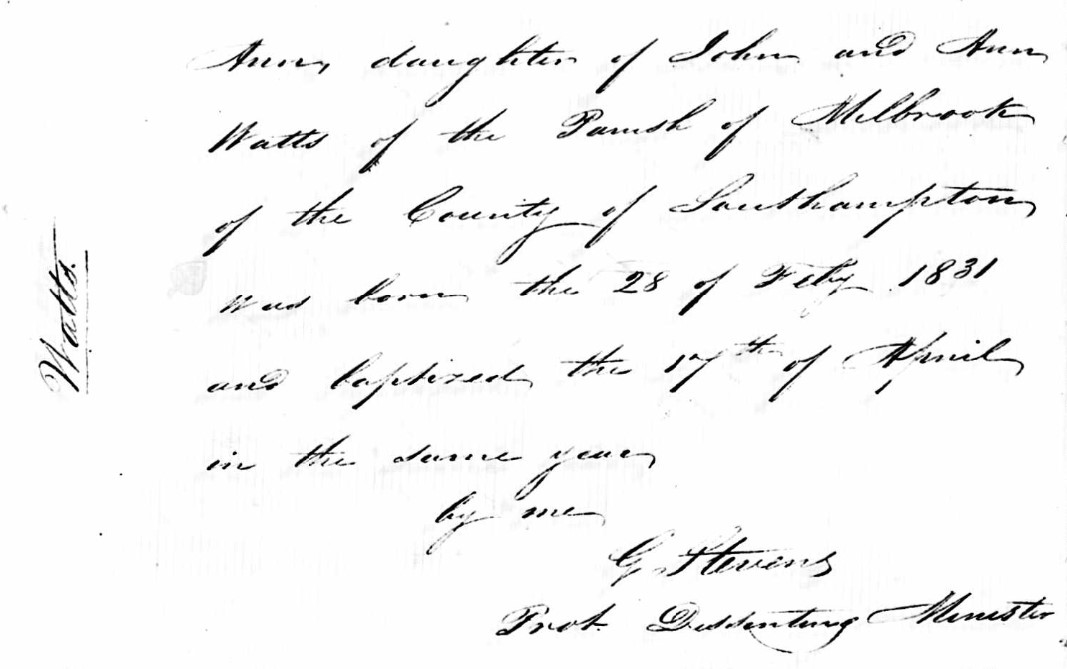 Watts.
Ann, daughter of John and Ann
Watts of the Parish of Milbrook
of the County of Southampton
was born the 28 of Feby 1831
and baptized the 17th of April
in the same year
by me
G. Stevens
Prot. Dissenting Minister